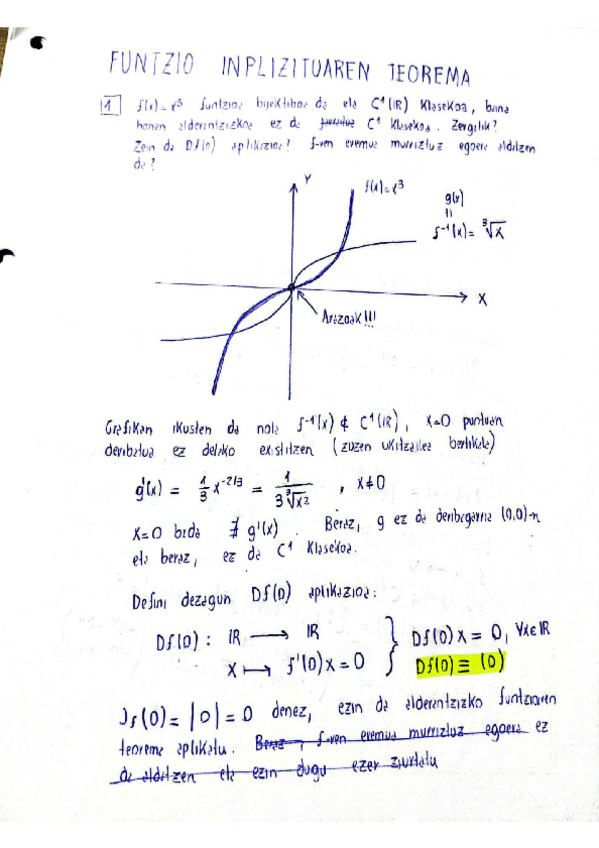 FUNTZIO INPLIZITUAREN TEOREMA
1 f(x)=x³ funtzioa bijektiboa da eta C¹(IR) klasekoa, baina
honen alderantzizkoa ez da C¹ klasekoa. Zergatik?
Zein da Df(0) aplikazioa? f-ren eremua murriztuz egoera aldatzen
da?
Y
f(x)=x³
g(x)
=
f⁻¹(x)= ³√x
X
Arazoak!!!
Grafikan ikusten da nola f⁻¹(x) ∉ C¹(IR), x=0 puntuan
deribatua ez delako existitzen (zuzen ukitzailea bertikala)
g'(x) = 1/3 x^(-2/3) = 1/(3 ³√x²) , x≠0
x=0 bada ∄ g'(x). Beraz, g ez da deribagarria (0,0)-n
eta beraz, ez da C¹ klasekoa.
Defini dezagun Df(0) aplikazioa:
Df(0) : IR ⟶ IR } Df(0)x = 0, ∀x∈IR
x ⟼ f'(0)x=0 } Df(0) ≡ (0)
Jf(0)= |0| = 0 denez, ezin da alderantzizko funtzioaren
teorema aplikatu. Beraz, f-ren eremua murriztuz egoera ez
da aldatzen eta ezin dugu ezer ziurtatu